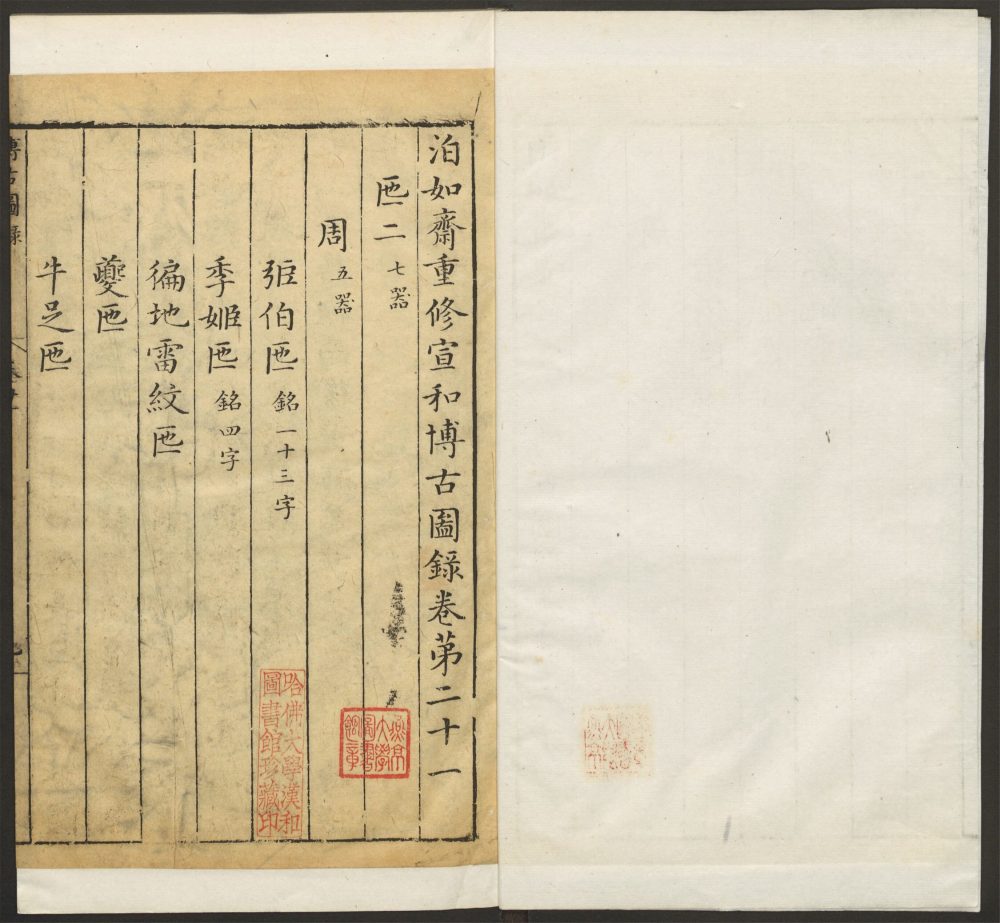 泊如齋重修宣和博古圖錄卷第二十一
匜二 七器
周 五器
弡伯匜 銘一十三字
季姬匜 銘四字
徧地雷紋匜
夔匜
牛足匜
博古圖錄
燕京大學圖書館章
哈佛大學漢和圖書館珍藏印